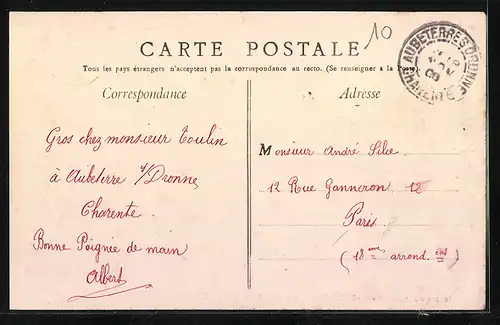 10
CARTE POSTALE
Tous les pays étrangers n'acceptent pas la correspondance au recto. (Se renseigner à la
Correspondance
Adresse
AUBETERRE-S-DRONNE
CHARENTE
Gros chez monsieur Toulin
à Aubeterre s/Dronne
Charente.
Bonne Poignée de main
Albert
Monsieur André
12 Rue Ganneron 12
Paris
(18ème arrond.